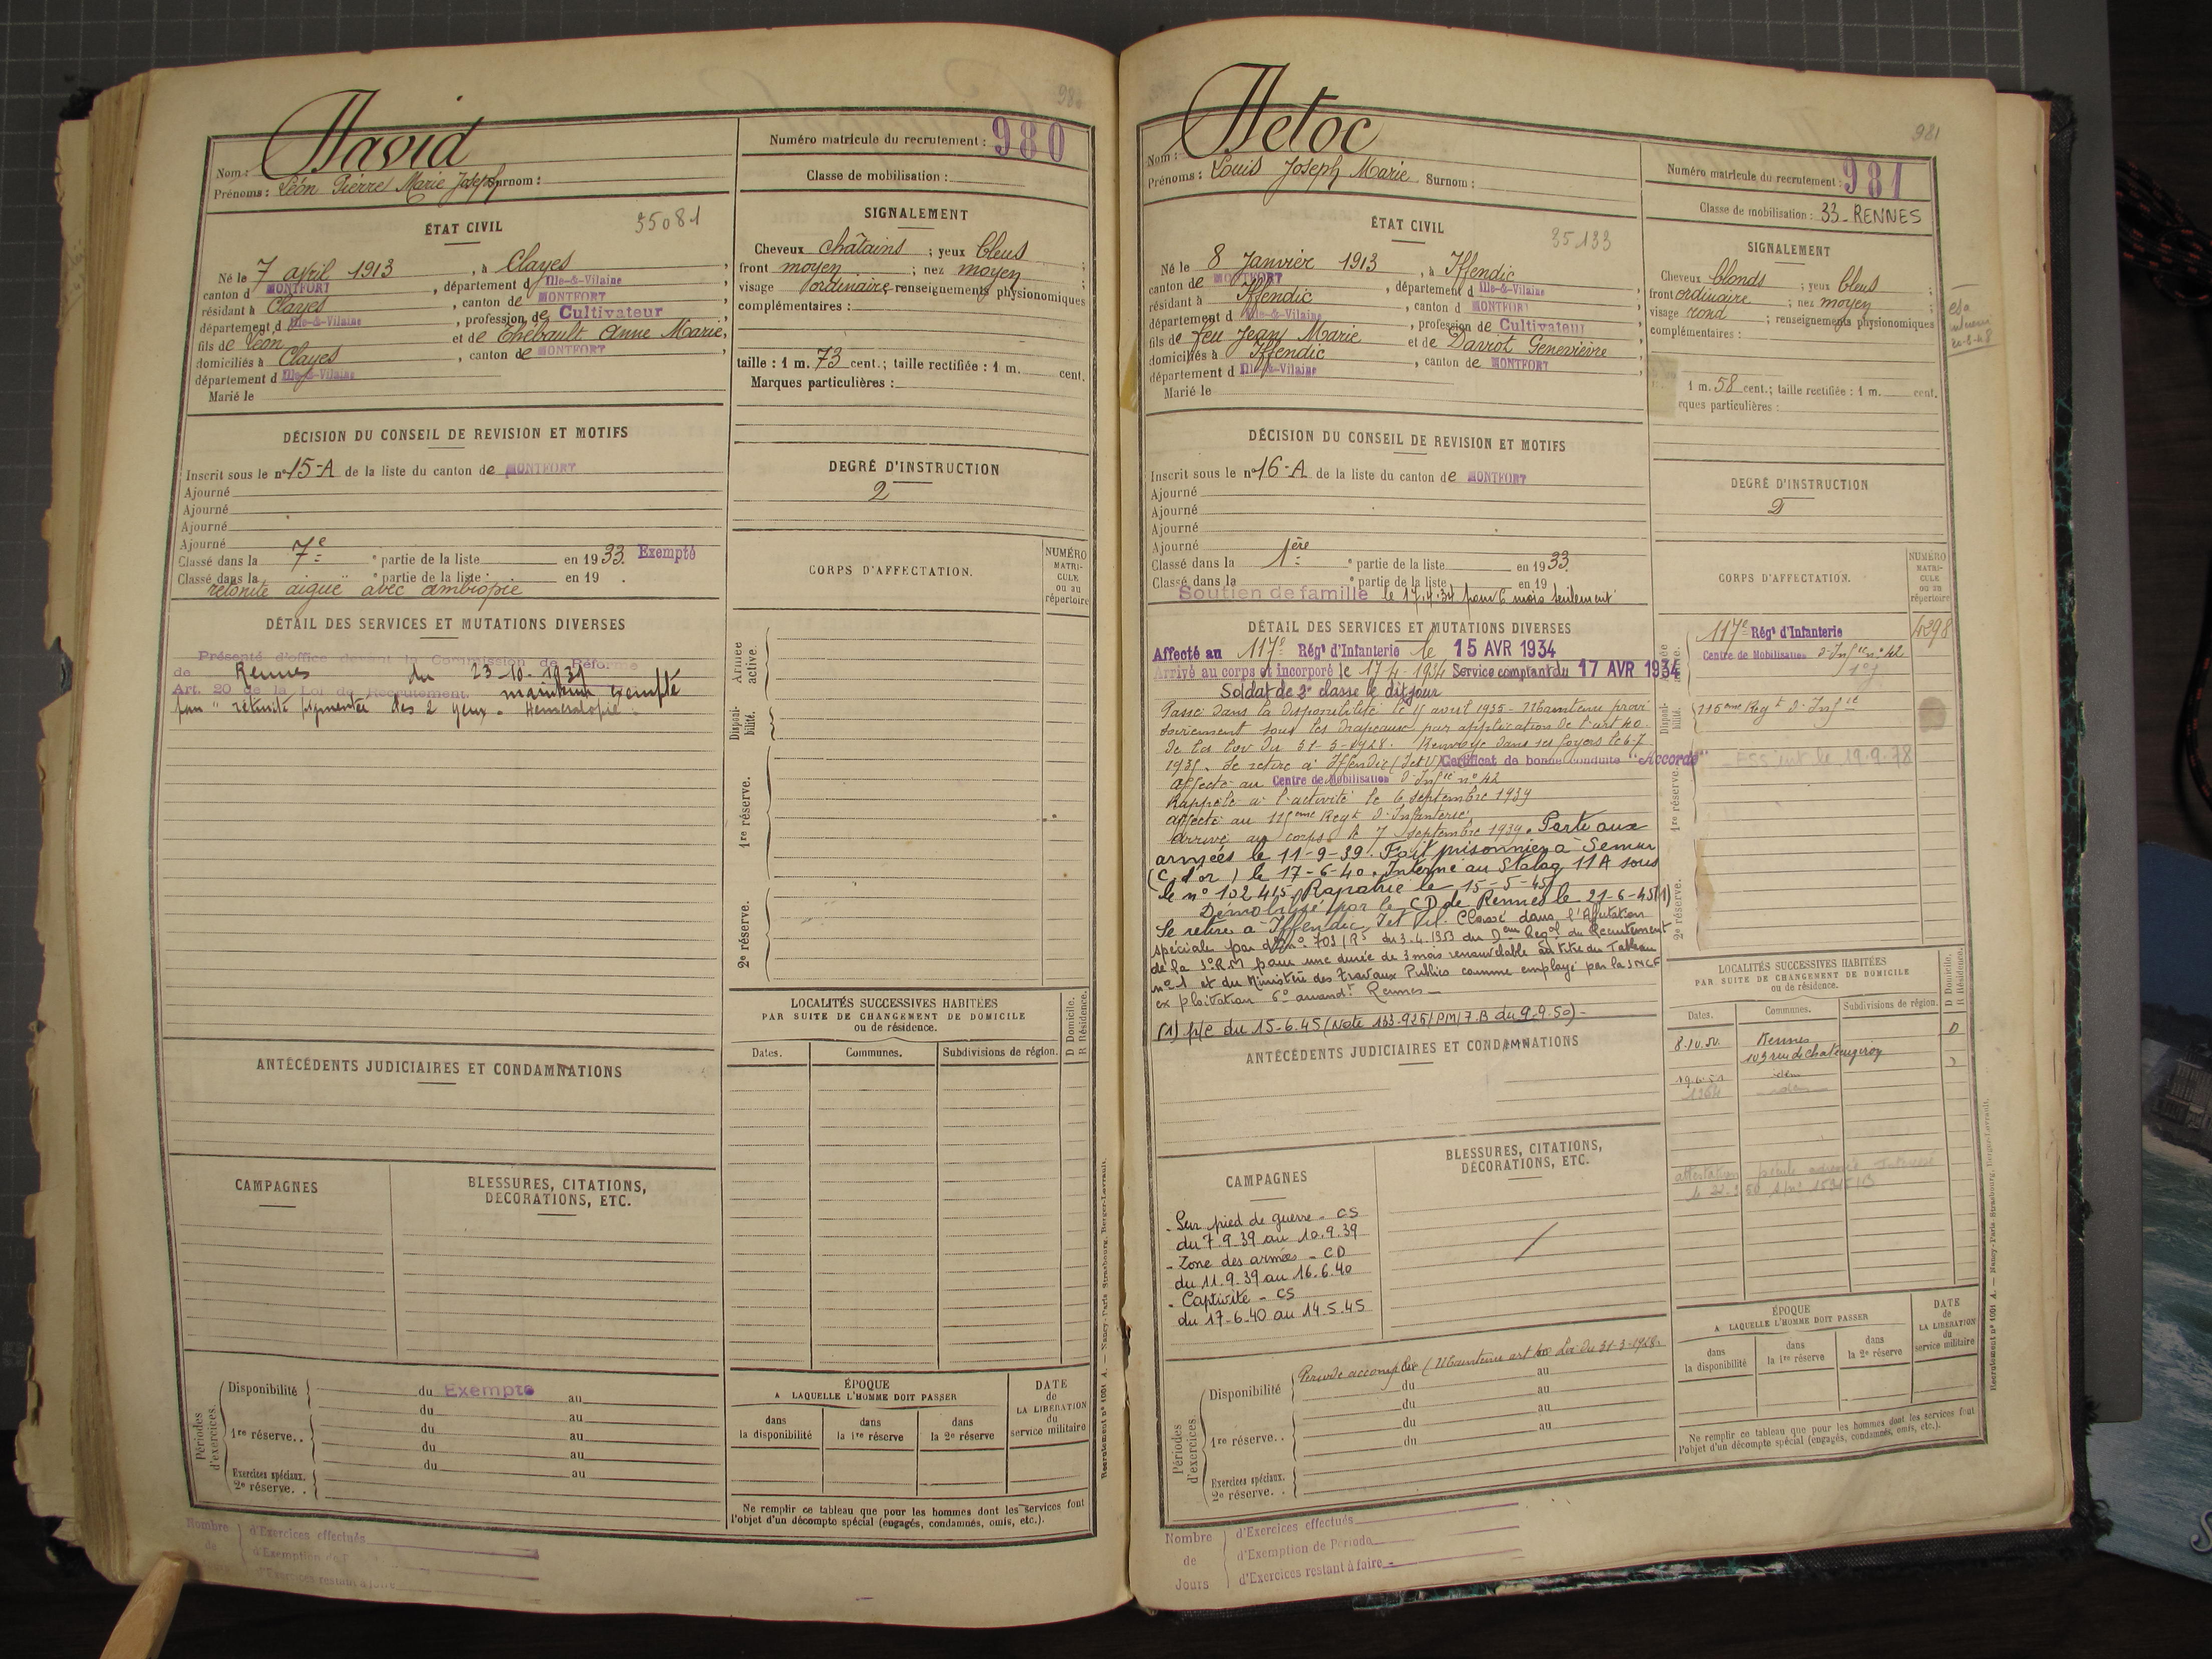 980
David
Nom :
Prénoms : Léon Pierre Marie Joseph Surnom :
Numéro matricule du recrutement : 980
Classe de mobilisation :
ÉTAT CIVIL
35081
Né le 7 avril 1913, à Clayes,
canton d MONTFORT, département d Ille-&-Vilaine,
résidant à Clayes, canton de MONTFORT,
département d Ille-&-Vilaine, profession de Cultivateur
fils de Léon et de Thébault Anne Marie,
domiciliés à Clayes, canton de MONTFORT,
département d Ille-&-Vilaine
Marié le
SIGNALEMENT
Cheveux châtains ; yeux bleus ;
front moyen ; nez moyen ;
visage ordinaire, renseignements physionomiques
complémentaires :
taille : 1 m. 73 cent.; taille rectifiée : 1 m. cent.
Marques particulières :
DÉCISION DU CONSEIL DE REVISION ET MOTIFS
Inscrit sous le n° 15-A de la liste du canton de MONTFORT
Ajourné
Ajourné
Ajourné
Ajourné
Classé dans la 7e partie de la liste en 1933. Exempté
Classé dans la partie de la liste : en 19 .
aiguë avec ambiopie
DEGRÉ D'INSTRUCTION
2
CORPS D'AFFECTATION.
NUMÉRO MATRI-CULE ou au répertoire
DÉTAIL DES SERVICES ET MUTATIONS DIVERSES
Présenté d'office devant la Commission de Réforme
de Rennes du 23-10-1939
Art. 20 de la Loi de Recrutement. maintenu exempté
pour "rétinite pigmentée des 2 yeux. Hémeralopie.
Armée active.
Disponi-bilité.
1re réserve.
2e réserve.
LOCALITÉS SUCCESSIVES HABITÉES
PAR SUITE DE CHANGEMENT DE DOMICILE
ou de résidence.
D Domicile. R Résidence.
Dates. Communes. Subdivisions de région.
ANTÉCÉDENTS JUDICIAIRES ET CONDAMNATIONS
CAMPAGNES
BLESSURES, CITATIONS,
DÉCORATIONS, ETC.
Périodes d'exercices.
Disponibilité du Exempté au
du au
1re réserve.. du au
du au
Exercices spéciaux. du au
2e réserve. .
ÉPOQUE
A LAQUELLE L'HOMME DOIT PASSER
dans la disponibilité
dans la 1re réserve
dans la 2e réserve
DATE de LA LIBÉRATION du service militaire
Ne remplir ce tableau que pour les hommes dont les services font
l'objet d'un décompte spécial (engagés, condamnés, omis, etc.).
Nombre de
d'Exercices effectués
d'Exemption de
d'Exercices restant à faire
Recrutement n° 1001 A. — Nancy-Paris-Strasbourg, Berger-Levrault.
981
Detoc
Nom :
Prénoms : Louis Joseph Marie Surnom :
Numéro matricule du recrutement : 981
Classe de mobilisation : 33 - RENNES
ÉTAT CIVIL
35133
Né le 8 Janvier 1913, à Iffendic,
canton de MONTFORT, département d Ille-&-Vilaine,
résidant à Iffendic, canton d MONTFORT,
département d Ille-&-Vilaine, profession de Cultivateur
fils de feu Jean Marie et de Davrot Geneviève,
domiciliés à Iffendic, canton de MONTFORT,
département d Ille-&-Vilaine
Marié le
SIGNALEMENT
Cheveux blonds ; yeux bleus ;
front ordinaire ; nez moyen ;
visage rond ; renseignements physionomiques
complémentaires :
1 m. 58 cent.; taille rectifiée : 1 m. cent.
rques particulières :
DÉCISION DU CONSEIL DE REVISION ET MOTIFS
Inscrit sous le n° 16-A de la liste du canton de MONTFORT
Ajourné
Ajourné
Ajourné
Ajourné
Classé dans la 1ère partie de la liste en 1933.
Classé dans la partie de la liste en 19
Soutien de famille le 17.4.34 pour 6 mois seulement
DEGRÉ D'INSTRUCTION
2
CORPS D'AFFECTATION.
NUMÉRO MATRI-CULE ou au répertoire
117e Rég' d'Infanterie 4298
Centre de Mobilisation d'Infie n° 42
115ème Regt d'Infie
19.9.78
DÉTAIL DES SERVICES ET MUTATIONS DIVERSES
Affecté au 117e Rég' d'Infanterie le 15 AVR 1934
Arrivé au corps et incorporé le 17-4-1934 Service comptant du 17 AVR 1934
Soldat de 2e classe le dit jour
Passé dans la disponibilité le 15 avril 1935 - Maintenu provi
soirement sous les drapeaux par application de l'art 40
de la loi du 31-3-1928. Renvoyé dans ses foyers le 6-7
1935. Se retire à Iffendic (I et V) Certificat de bonne conduite "Accordé"
affecté au Centre de Mobilisation d'Infie n° 42
Rappelé à l'activité le 6 septembre 1939
affecté au 115ème Regt d'Infanterie
arrivé au corps le 7 septembre 1939. Parti aux
armées le 11-9-39. Fait prisonnier à Semur
(C. d'or) le 17-6-40. Interné au Stalag 11A sous
le n° 102415. Rapatrié le 15-5-45.
Démobilisé par le CD de Rennes le 21-6-45 (1)
Se retire à Iffendic, I et Vil. Classé dans l'Affectation
spéciale par don n° 703/RS du 3.4.1953 du Dem Regal du Recrutement
de la 3e R.M pour une durée de 3 mois renouvelable au titre du Tableau
n° 1 et du Ministère des Travaux Publics comme employé par la SNCF
exploitation 6e arrondt Rennes -
(1) p/c du 15-6-45 (Note 133.925/PM/7.B du 9.9.50) -
Disponi-bilité.
1re réserve.
2e réserve.
LOCALITÉS SUCCESSIVES HABITÉES
PAR SUITE DE CHANGEMENT DE DOMICILE
ou de résidence.
D Domicile. R Résidence.
Dates. Communes. Subdivisions de région.
8.10.50. Rennes D
103 rue de Chateaugiron
idem
1954 idem
attestation
ANTÉCÉDENTS JUDICIAIRES ET CONDAMNATIONS
CAMPAGNES
- Sur pied de guerre - CS
du 7.9.39 au 10.9.39
- Zone des armées - CD
du 11.9.39 au 16.6.40
- Captivité - CS
du 17-6-40 au 14.5.45
BLESSURES, CITATIONS,
DÉCORATIONS, ETC.
Périodes d'exercices.
Période accomplie (Maintenu art 40 loi du 31-3-1928.
Disponibilité du au
du au
1re réserve. . du au
du au
Exercices spéciaux.
2e réserve. .
ÉPOQUE
A LAQUELLE L'HOMME DOIT PASSER
dans la disponibilité
dans la 1re réserve
dans la 2e réserve
DATE de LA LIBÉRATION du service militaire
Ne remplir ce tableau que pour les hommes dont les services font
l'objet d'un décompte spécial (engagés, condamnés, omis, etc.).
Nombre de Jours
d'Exercices effectués
d'Exemption de Période
d'Exercices restant à faire
Recrutement n° 1001 A. — Nancy-Paris-Strasbourg, Berger-Levrault.